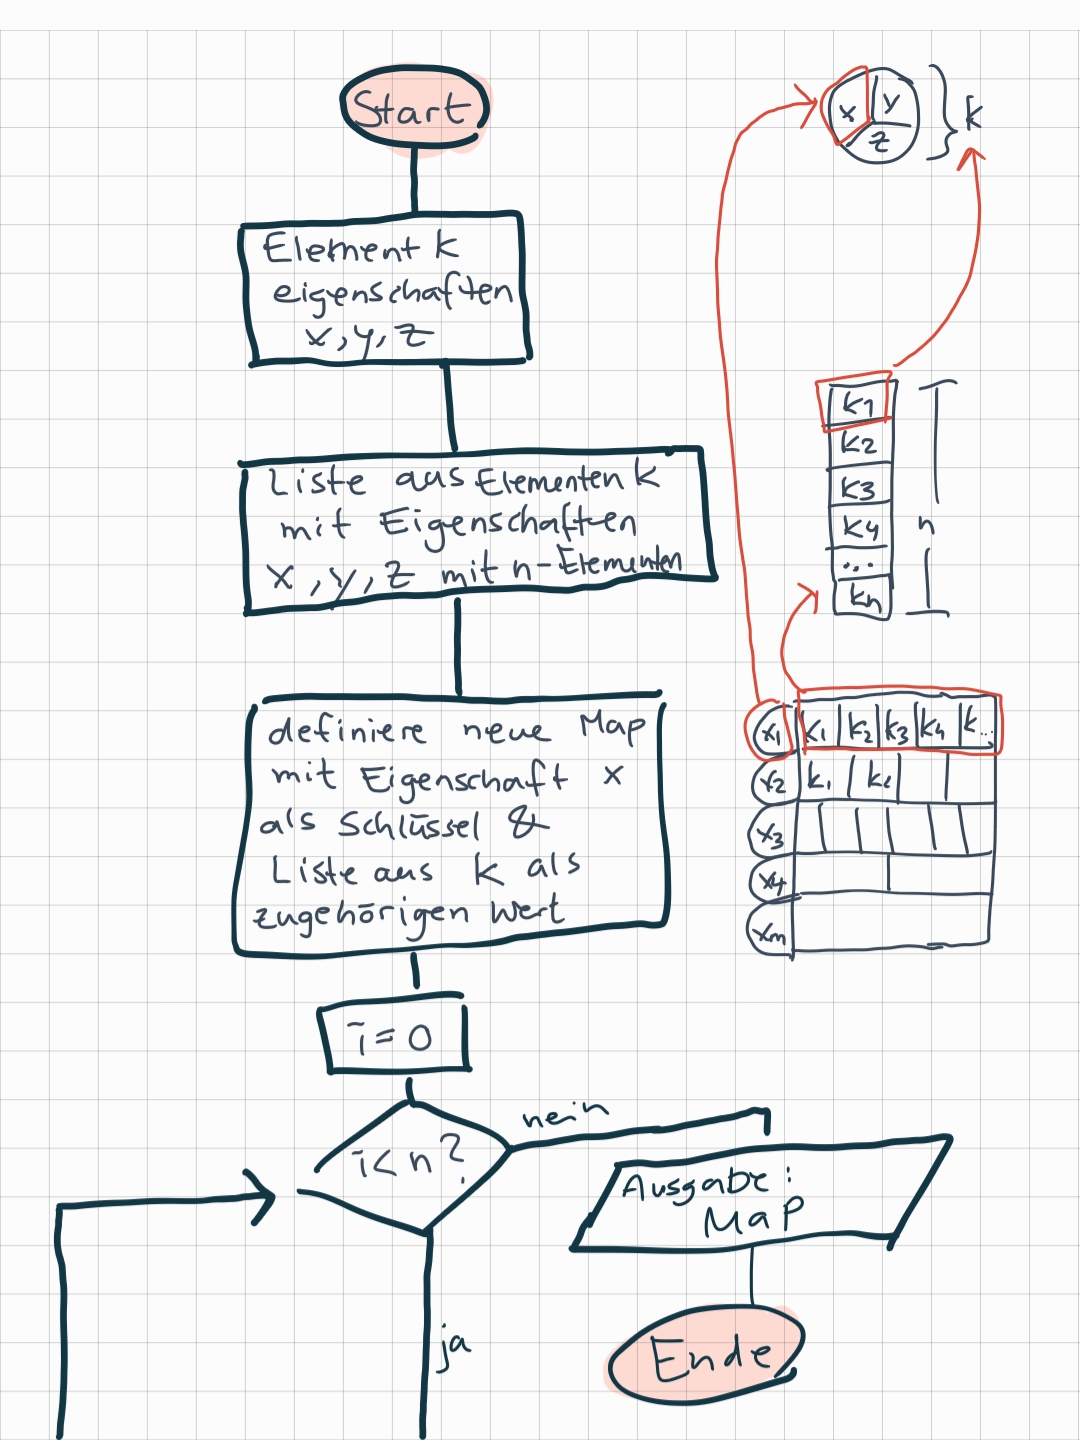 Start
Element k
eigenschaften
x, y, z
Liste aus Elementen k
mit Eigenschaften
x, y, z mit n-Elementen
definiere neue Map
mit Eigenschaft x
als Schlüssel &
Liste aus k als
zugehörigen Wert
i = 0
i < n ?
nein
ja
Ausgabe:
Map
Ende
x y
z
k
k1
k2
k3
k4
...
kn
n
x1 k1 k2 k3 k4 k...
x2 k1 k2
x3
x4
xm